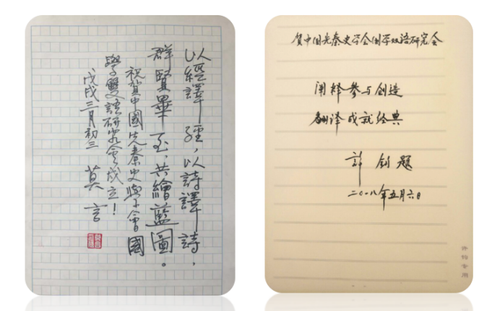 以經譯經，以詩譯詩，
群賢畢至，共繪藍圖。
祝賀中國先秦史學會國
學雙語研究會成立！
戊戌三月初三 莫言
贺中国先秦史学会国学双语研究会
阐释参与创造
翻译成就经典
许钧题
二〇一八年五月六日